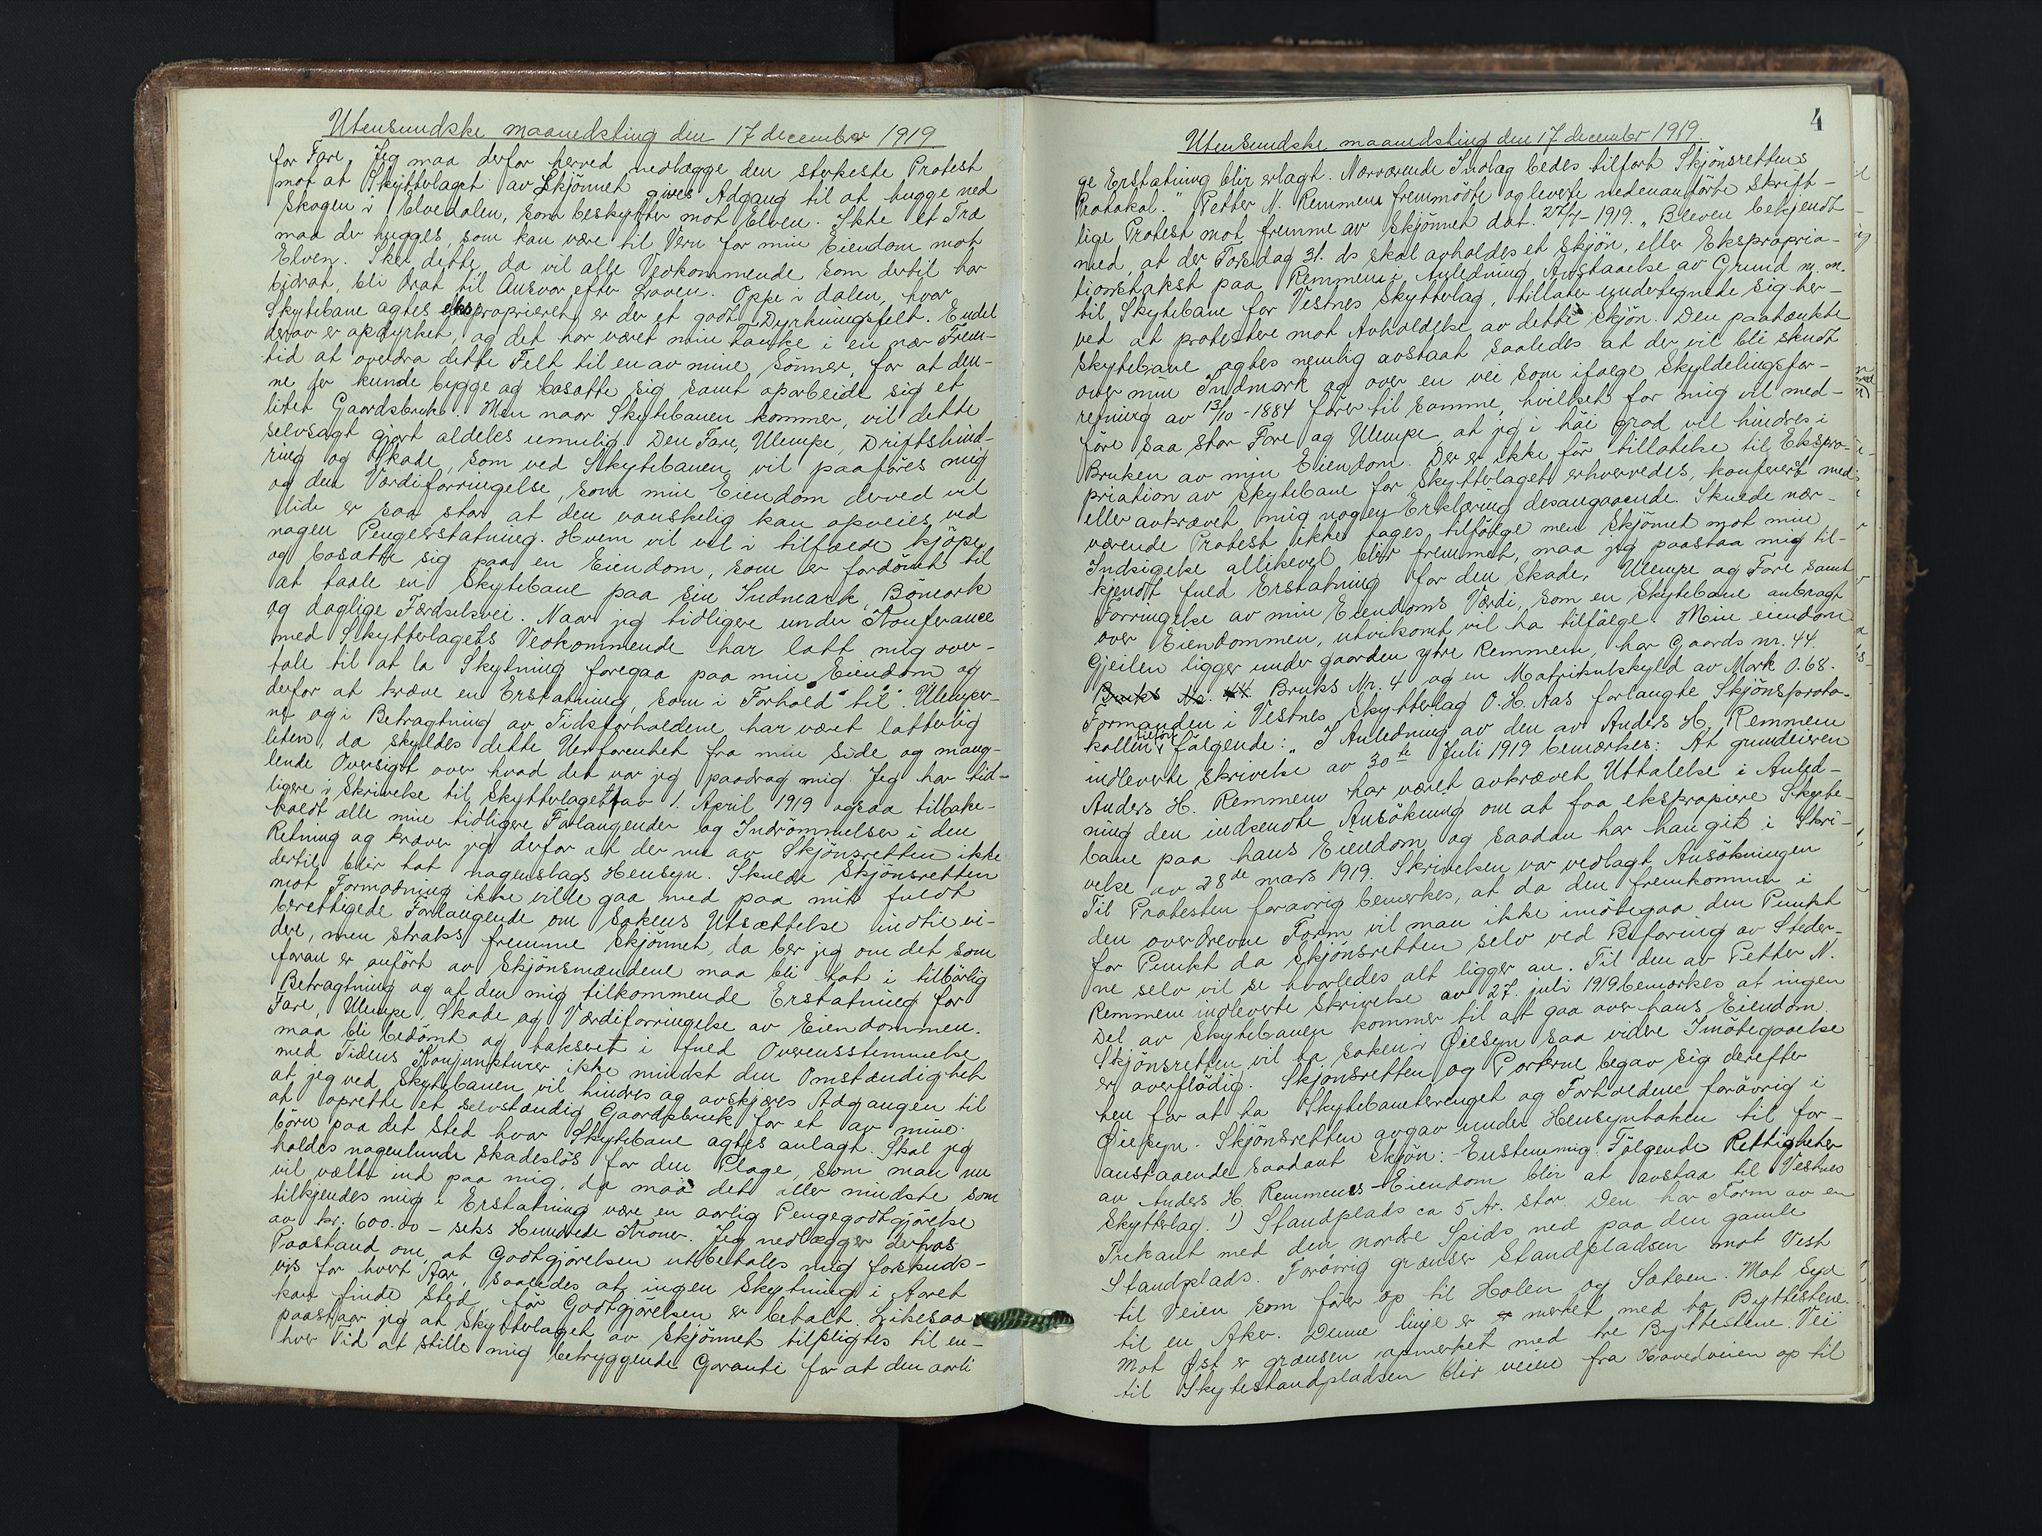 Utensundske maanedsting den 17 december 1919
for Fare. Jeg maa derfor herved nedlægge den sterkeste Protest
mot at Skytterlaget av Skjønnet gives Adgang til at hugge ned
Skogen i Elvedalen, som beskytter mot Elven. Ikke et Træ
maa der hugges, som kan være til Vern for min Eiendom mot
Elven. Sker dette, da vil alle Vedkommende som dertil har
bidrat, bli drat til Ansvar efter Loven. Oppe i dalen, hvor
Skytebane agtes eksproprieret, er der et godt Dyrkningsfelt. Endel
derav er opdyrket, og det har været min Tanke i en nær Frem-
tid at overdra dette Felt til en av mine Sønner, for at den-
ne der kunde bygge og bosætte sig samt oparbeide sig et
litet Gaardsbruk. Men naar Skytebanen kommer, vil dette
selvsagt gjørt aldeles umulig. Den Fare, Ulempe, Driftshind-
ring og Skade, som ved Skytebanen vil paaføres mig
og den Værdiforringelse, som min Eiendom derved vil
lide er saa stor at den vanskelig kan opveies ved
nogen Pengeerstatning. Hvem vil vel i tilfælde kjøpe
og bosætte sig paa en Eiendom, som er fordømt til
at taale en Skytebane paa sin Indmark, Bömark
og daglige Færdselsvei. Naar jeg tidligere under Konferance
med Skytterlagets Vedkommende har latt mig over-
tale til at la Skytning foregaa paa min Eiendom og
derfor at kræve en Erstatning, som i Forhold til Ulemper-
ne og i Betragtning av Tidsforholdene, har været latterlig
liten, da skyldes dette Uerfarenhet fra min side og mang-
lende Oversigt over hvad det var jeg paadrog mig. Jeg har tid-
ligere i Skrivelse til Skytterlaget av 1. April 1919 ogsaa tilbake-
kaldt alle mine tidligere Forlangender og Indrömmelser i den
Retning og kræver jeg derfor at der nu av Skjønsretten ikke
dertil blir tat nogenslags Hensyn. Skulde Skjønsretten
mot Formodning ikke ville gaa med paa mit fuldt
berettigede Forlangende om Sakens Utsættelse indtil vi-
dere, men straks fremme Skjønnet, da ber jeg om det som
foran er anført av Skjønsmændene maa bli tat i tilbørlig
Betragtning og at den mig tilkommende Erstatning for
Fare, Ulempe, Skade og Værdiforringelse av Eiendommen.
maa bli bedømt og takseret i fuld Overensstemmelse
med Tidens Konjunkturer ikke mindst den Omstændighet
at jeg ved Skytebanen vil hindres og avskjæres Adgangen til
at oprette et selvstændig Gaardsbruk for et av mine
børn paa det sted hvor Skytebane agtes anlagt. Skal jeg
holdes nogenlunde skadesløs for den Plage, som man nu
vil vælte ind paa mig, da maa det aller mindste som
tilkjendes mig i Erstatning være en aarlig Pengegodtgjørelse
av kr. 600.00 - seks Hundrede Kroner. Jeg nedlægger derhos
Paastand om, at Godtgjørelsen utbetales mig forskuds-
vis for hvert Aar, saaledes at ingen Skytning i Aaret
kan finde Sted før Godtgjørelsen er betalt. Likesaa
paastaar jeg at Skytterlaget av Skjønnet tilpligtes til en-
hver Tid at stille mig betryggende Garanti for at den aarli
4
Utensundske maanedsting den 17 december 1919.
ge Erstatning blir erlagt. Nærværende Indlæg bedes tilført Skjønsrettens
Protokol." Petter N. Remmem fremmødte og leverte nedenanførte Skrift-
lige Protest mot fremme av Skjønnet dat. 27/7-1919. "Bleven bekjendt
med, at der Torsdag 31. ds skal avholdes et Skjøn, eller Ekspropria-
tionstakst paa Remmem i Anledning Avstaaelse av Grund m. m.
til Skytebane for Vestnes Skytterlag, tillater undertegnede sig her-
ved at protestere mot Avholdelse av dette Skjøn. Den paatænkte
Skytebane agtes nemlig avstaat saaledes at der vil bli skudt
over min Indmark og over en vei som ifølge Skyldelingsfor-
retning av 13/10-1884 fører til samme, hvilket for mig vil med-
føre saa stor Fare og Ulempe, at jeg i høi grad vil hindres i
Bruken av min Eiendom. Der er ikke før tillatelse til Ekspro-
priation av Skytebane for Skytterlaget erhvervedes, konferert med
eller avkrævet mig nogen Erklæring desangaaende. Skulde nær-
værende Protest ikke tages tilfølge men Skjønnet mot min
Indsigelse allikevel blir fremmet, maa jeg paastaa mig til-
kjendt fuld Erstatning for den Skade, Ulempe og Fare samt
Forringelse av min Eiendoms Værdi, som en Skytebane anbragt
over Eiendommen, utvilsomt vil ha tilfølge. Min eiendom
Gjeilen ligger under gaarden ytre Remmem, har Gaards nr. 44.
Bruks No. 44 Bruks Nr. 4 og en Matrikulskyld av Mark 0.68.
Formanden i Vestnes Skytterlag O. H. Aas forlangte Skjønsproto-
kollen tilført følgende: "I Anledning av den av Anders H. Remmem
indleverte skrivelse av 30te Juli 1919 bemerkes: At grundeieren
Anders H. Remmem har været avkrævet Uttalelse i Anled-
ning den indsendte Ansøkning om at faa ekspropiere Skyte-
bane paa hans Eiendom og saadan har han git i Skri-
velse av 28de mars 1919. Skrivelsen var vedlagt Ansøkningen
Til Protesten forøvrig bemerkes, at da den fremkommer i
den overdrevne Form vil man ikke imøtegaa den Punkt
for Punkt da Skjønsretten selv ved Befaring av Steder-
ne selv vil se hvorledes alt ligger an. Til den av Petter N.
Remmem indleverte Skrivelse av 27. juli 1919 bemerkes at ingen
Del av Skytebanen kommer til at gaa over hans Eiendom.
Skjønsretten vil ta saken i Øiesyn saa videre Imøtegaaelse
er overflødig. Skjønsretten og Parterne begav sig derefter
hen for at ta Skytebaneterrænget og Forholdene forøvrig i
Øiesyn. Skjønsretten avgav under Hensyntaken til for-
anstaaende saadant Skjøn: Enstemmig. Følgende Rettigheter
av Anders H. Remmems Eiendom blir at avstaa til Vestnes
Skytterlag. 1) Standplads ca 5 Ar. stor. Den har Form av en
Trekant med den nordre Spids ned paa den gamle
Standplads. Forøvrig grænser Standpladsen mot Vest
til Veien som fører op til Holen og Sætven. Mot Syd
til en Aker. Denne linje er merket med to Byttestene.
Mot Øst er grænsen opmerket med tre Byttestene. Vei
til Skytestandpladsen blir veien fra Hovedveien op til